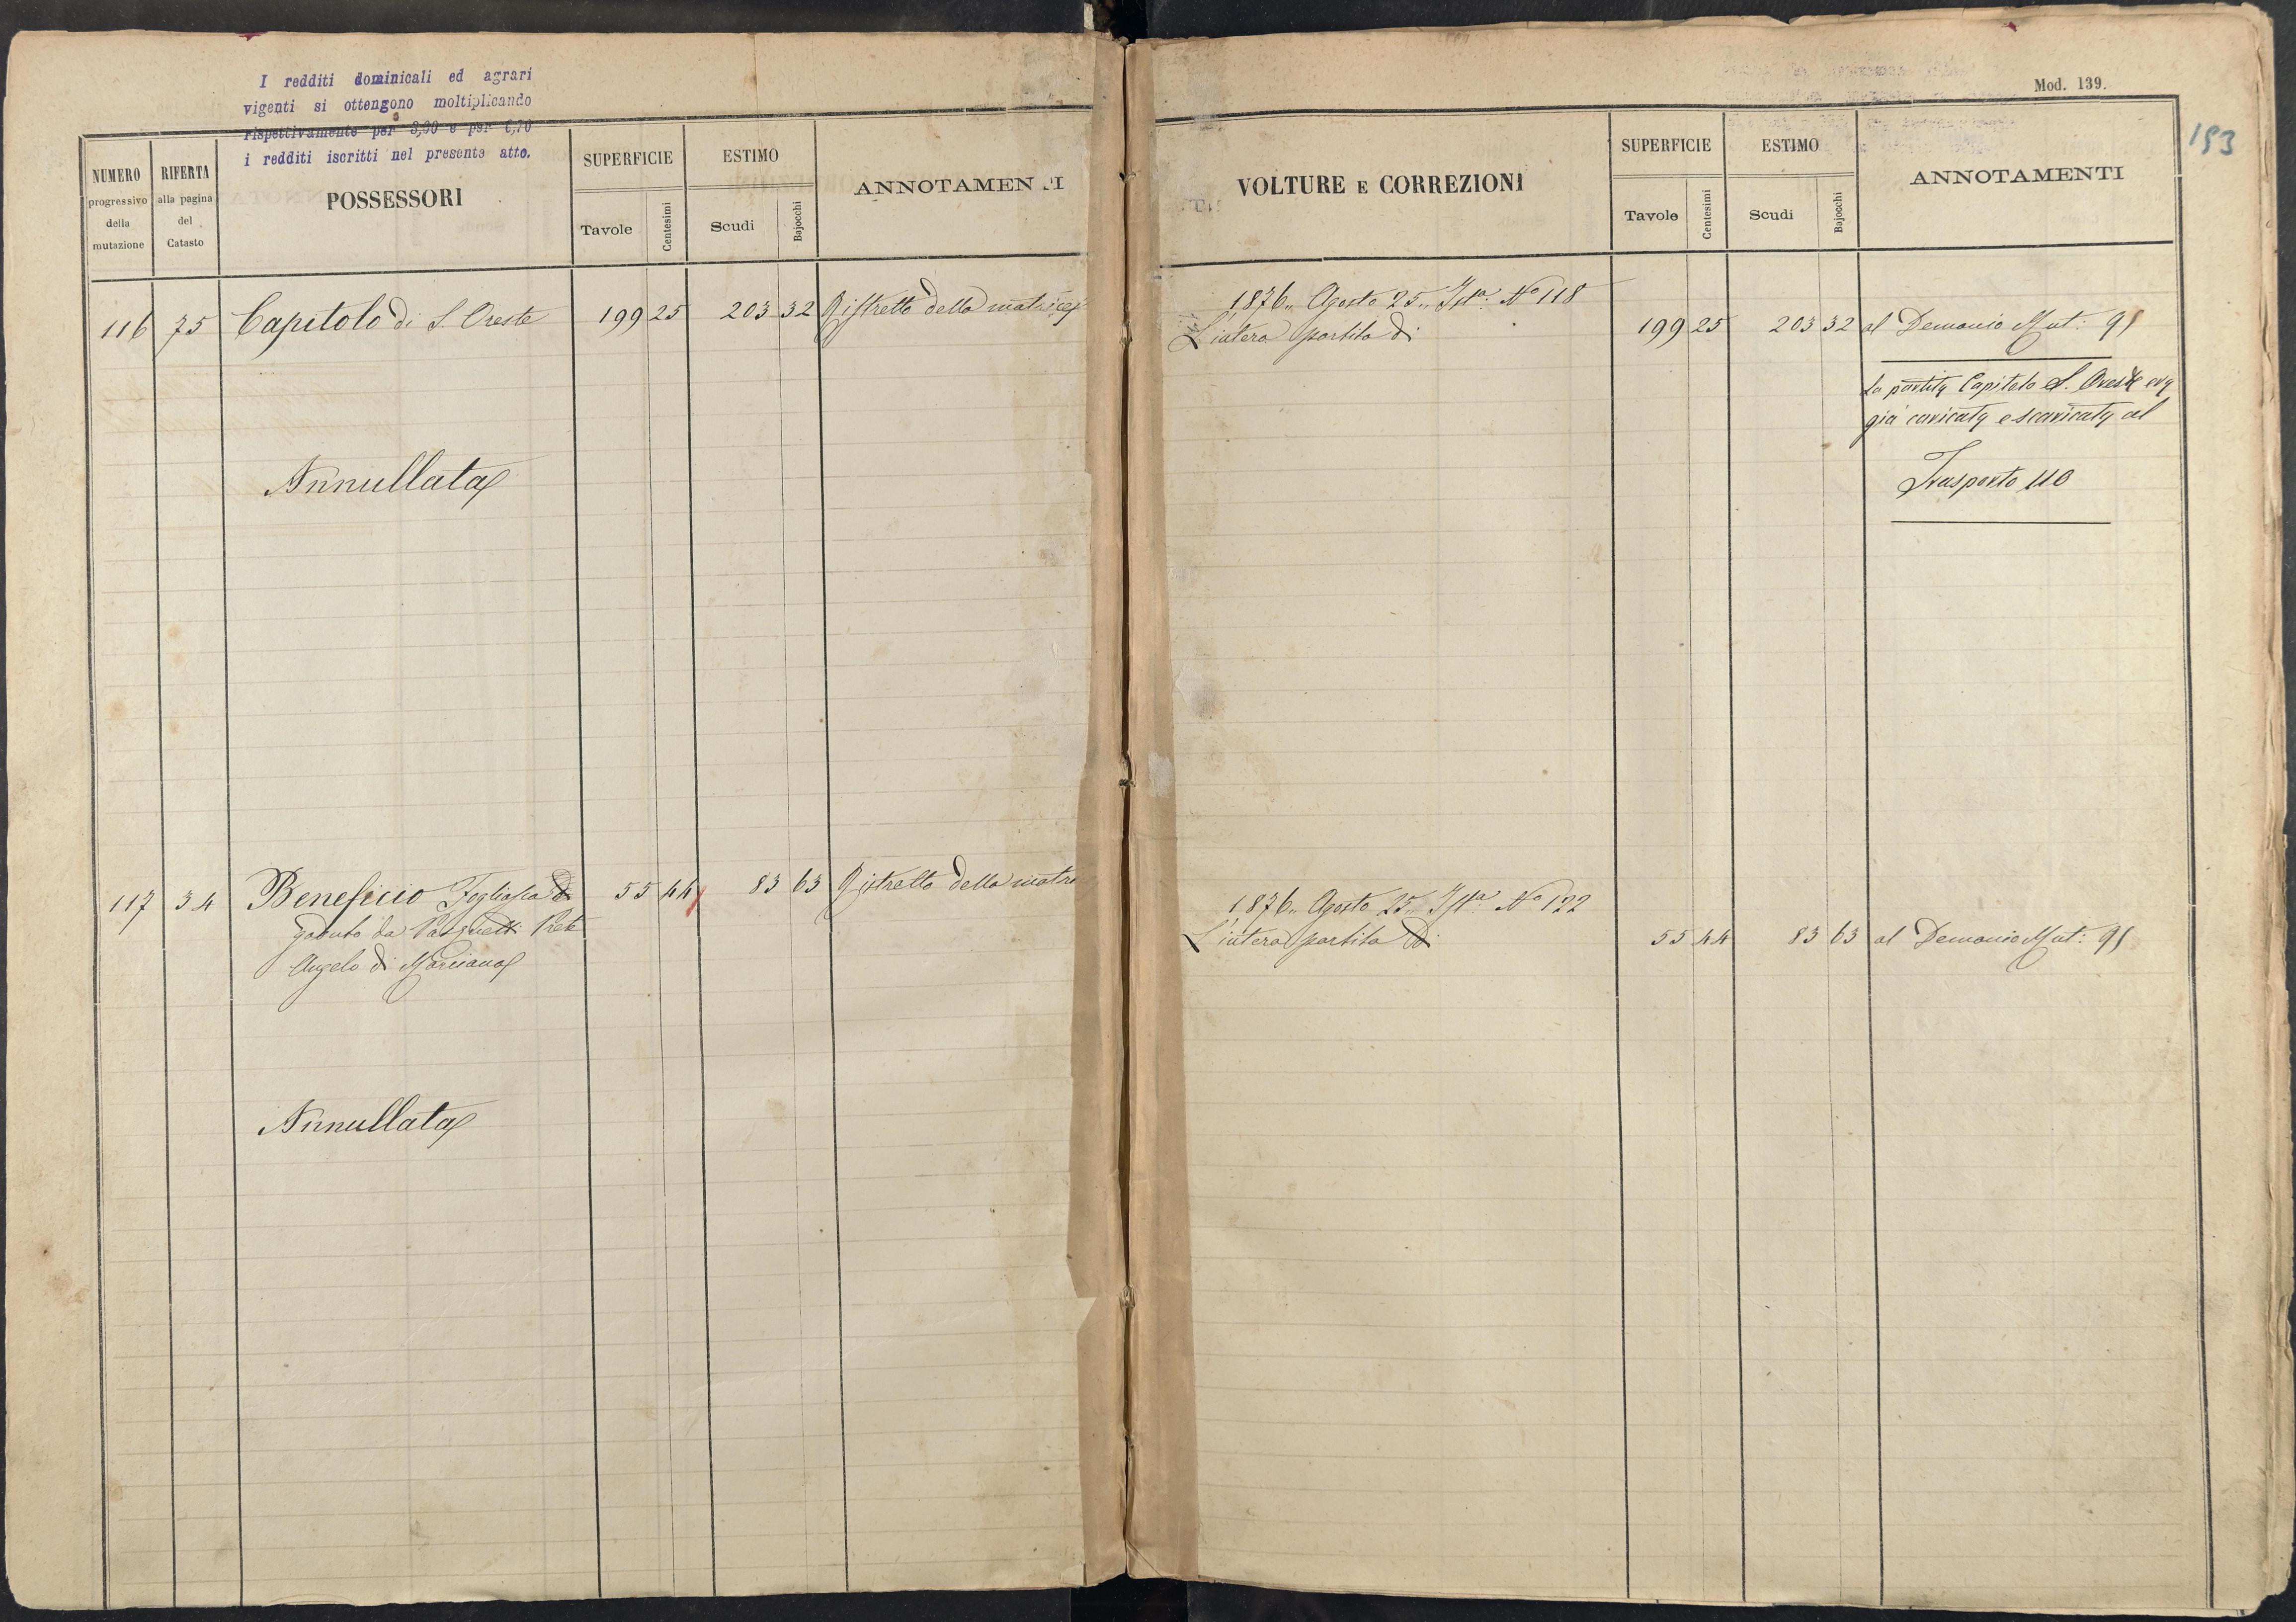 I redditi dominicali ed agrari
vigenti si ottengono moltiplicando
rispettivamente per 3,30 e per 6,70
i redditi iscritti nel presente atto.
NUMERO
progressivo
della
mutazione
RIFERTA
alla pagina
del
Catasto
POSSESSORI
SUPERFICIE
Tavole
Centesimi
ESTIMO
Scudi
Bajocchi
ANNOTAMENTI
116 75 Capitolo di S. Oreste 199 25 203 32 Ristretto della matrice
Annullata
117 34 Beneficio di 55 44 83 63 Ristretto della matri
goduto da Pasquetti Prete
Angelo di Marciano
Annullata
Mod. 139.
193
VOLTURE E CORREZIONI
SUPERFICIE
Tavole
Centesimi
ESTIMO
Scudi
Bajocchi
ANNOTAMENTI
1876 Agosto 25 Ista. No 118
L'intera partita di 199 25 203 32 al Demanio Mut: 91
La partita Capitolo S. Oreste era
già caricata e scaricata al
Trasporto 110
1876 Agosto 25 Ista. No 122
L'intera partita di 55 44 83 63 al Demanio Mut: 91